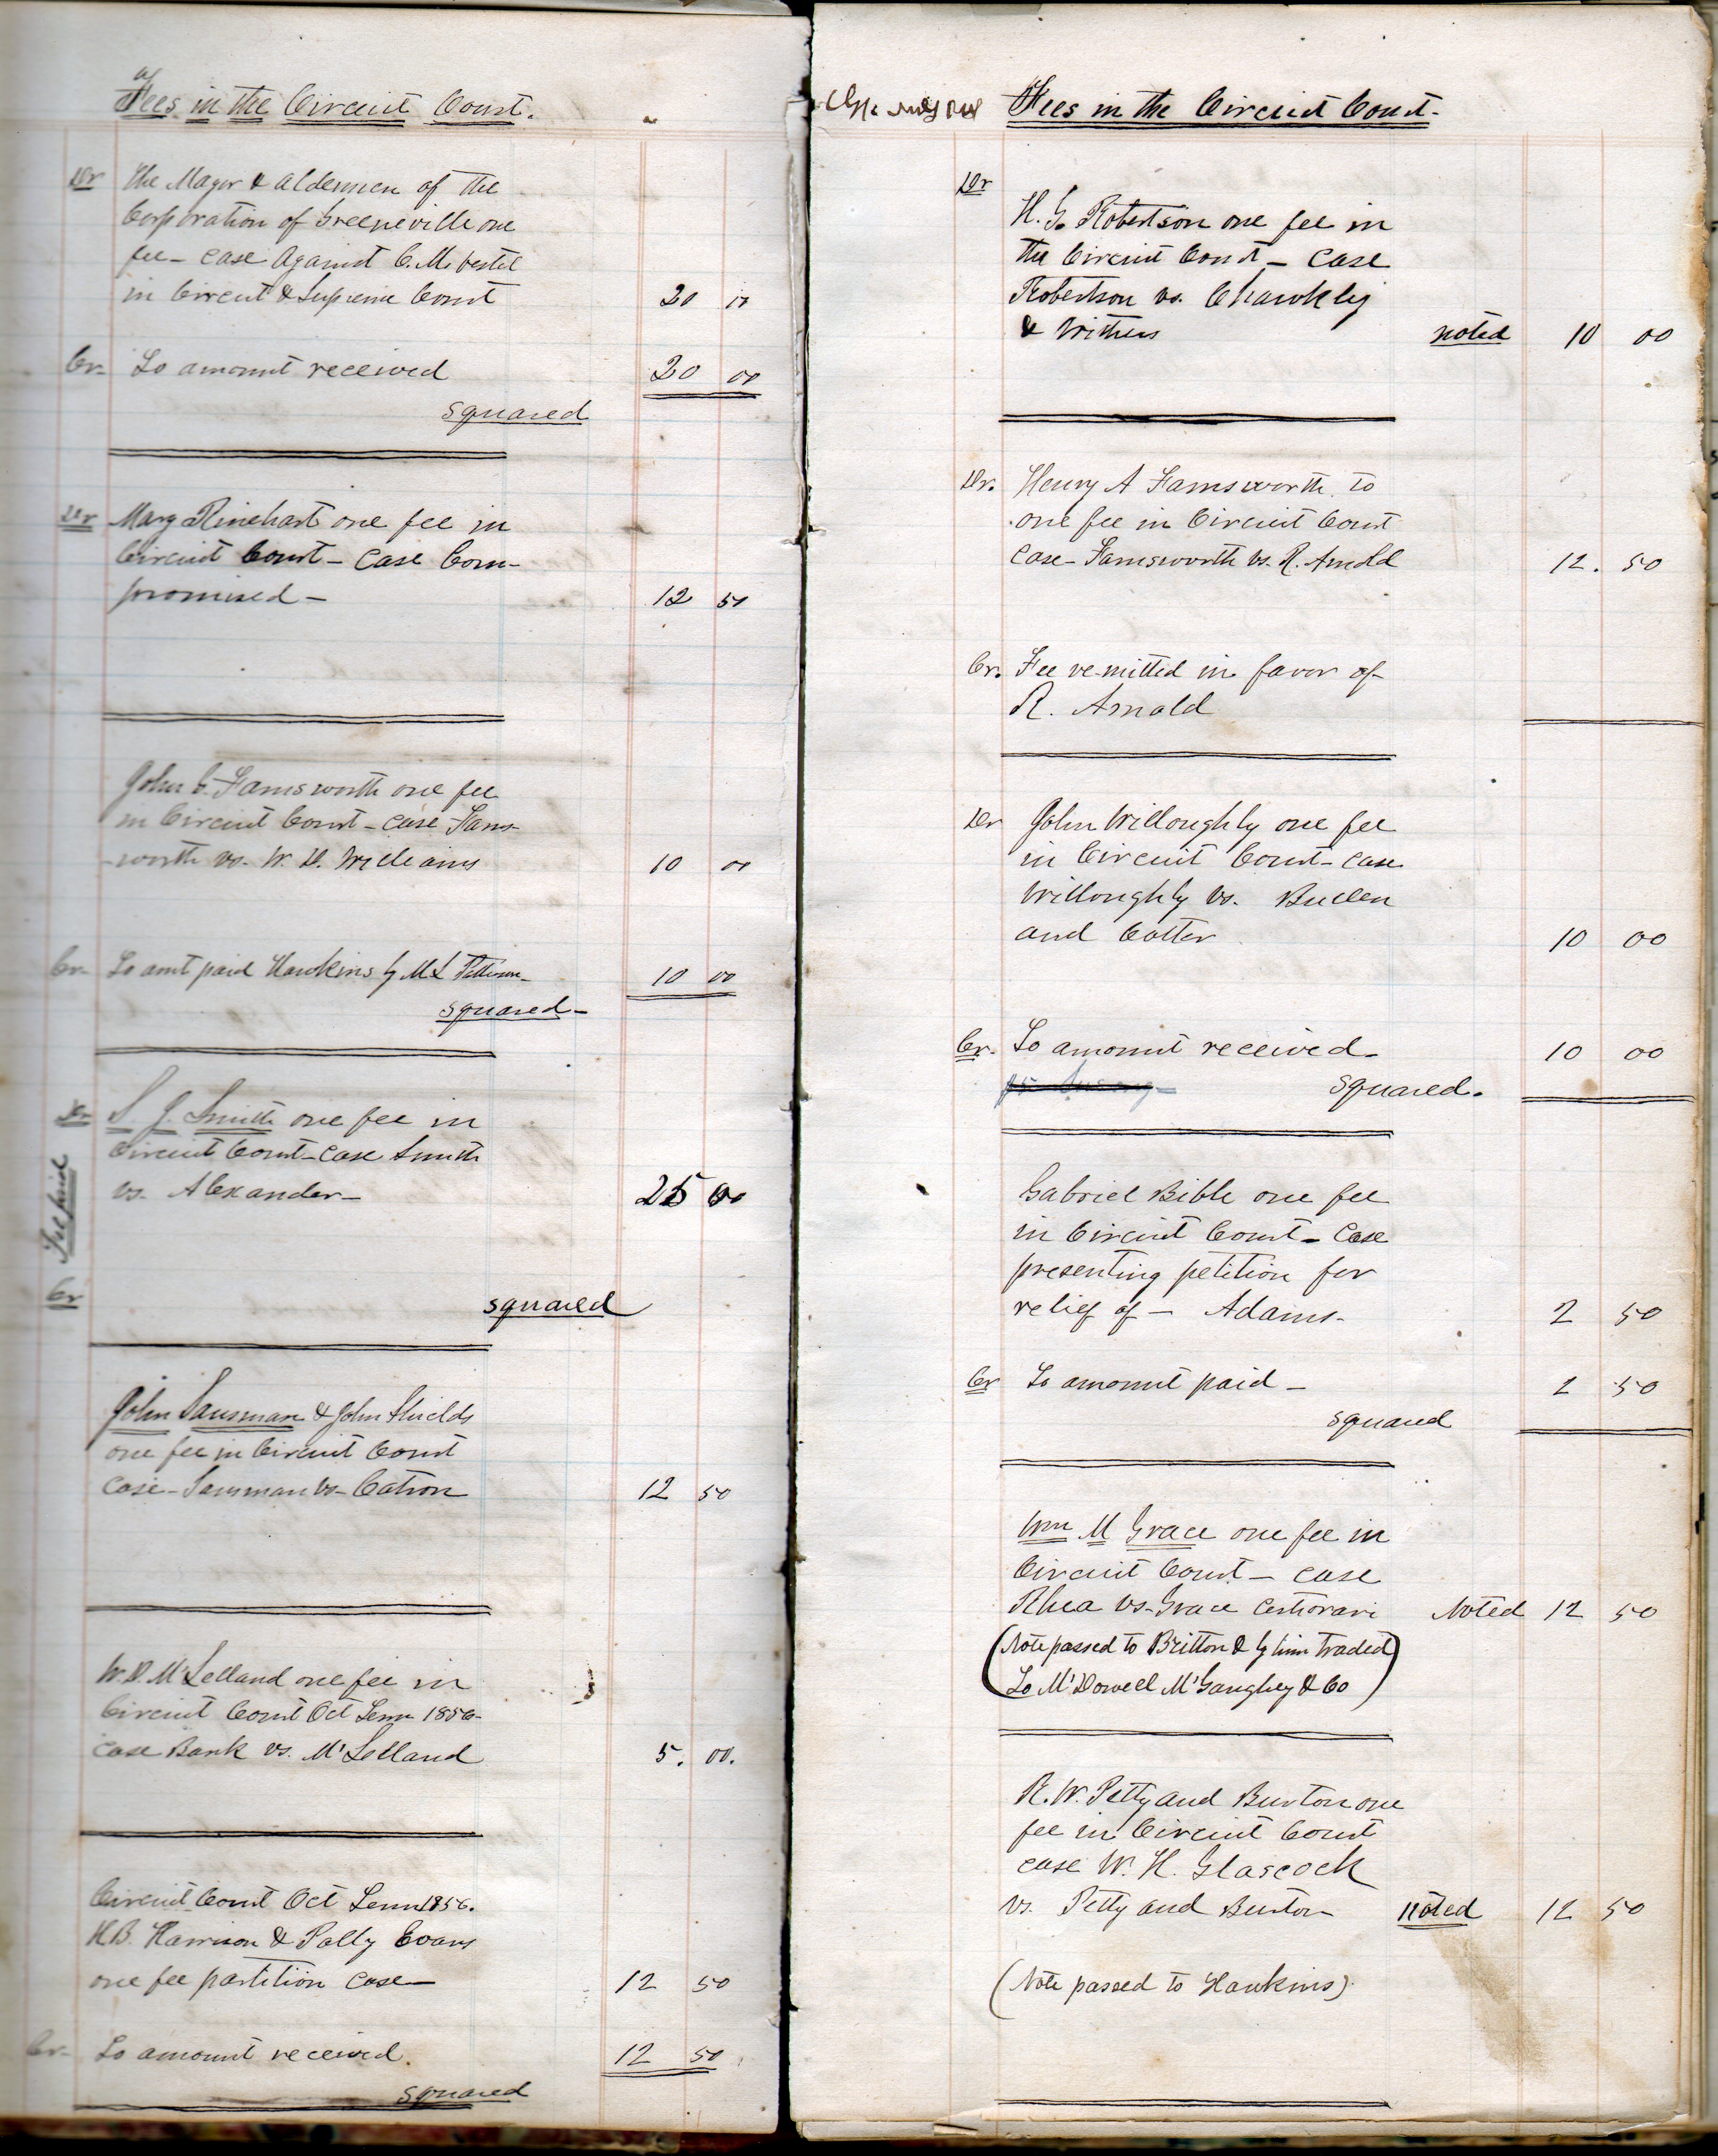 Fees in the Circuit Court.
Dr The Mayor & aldermen of the
Corporation of Greeneville one
fee - case against C. M. Vestel
in Circuit & Supreme Court 20 00
Cr. To amount received 20 00
squared
Dr Mary Rinehart one fee in
Circuit Court - case Com-
promised - 12 50
John C. Farnsworth one fee
in Circuit Court - case Farns-
worth vs. W. D. Williams 10 00
Cr. To amt paid Hawkins by M L Patterson
10 00
squared -
Dr S. J. Smith one fee in
Circuit Court - case Smith
vs. Alexander - 25 00
Cr Fee paid
squared
John Sausman & John Shields
one fee in Circuit Court
case - Sausman vs - Catron 12 50
W. D. M'Lelland one fee in
Circuit Court Oct Term 1856 -
case Bank vs. M'Lelland 5. 00.
Circuit Court Oct Term 1856.
H.B. Harrison & Polly Evans
one fee partition case - 12 50
Cr. To amount received. 12 50
squared
Fees in the Circuit Court.
Dr
H. G. Robertson one fee in
the Circuit Court - case
Robertson vs. Chawkly
& Withers noted 10 00
Dr. Henry A Farnsworth to
one fee in Circuit Court
case - Farnsworth vs. R. Arnold 12. 50
Cr. Fee remitted in favor of
R. Arnold
Dr John Willoughby one fee
in Circuit Court - case
Willoughby vs. Bullen
and Cotter 10 00
Cr. To amount received - 10 00
squared.
Gabriel Bible one fee
in Circuit Court - case
presenting petition for
relief of - Adams - 2 50
Cr To amount paid - 2 50
squared
Wm M Grace one fee in
Circuit Court - case
Rhea vs - Grace Certiorari Noted 12 50
(Note passed to Britton & by him traded
To M'Dowell M'Gaughey & Co)
R. W. Petty and Burton one
fee in Circuit Court
case W. H. Glascock
vs. Petty and Burton noted 12 50
(Note passed to Hawkins)